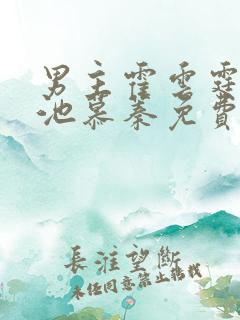 男主霍云霆
池慕秦免费
长淮望断
未经同意禁止转载